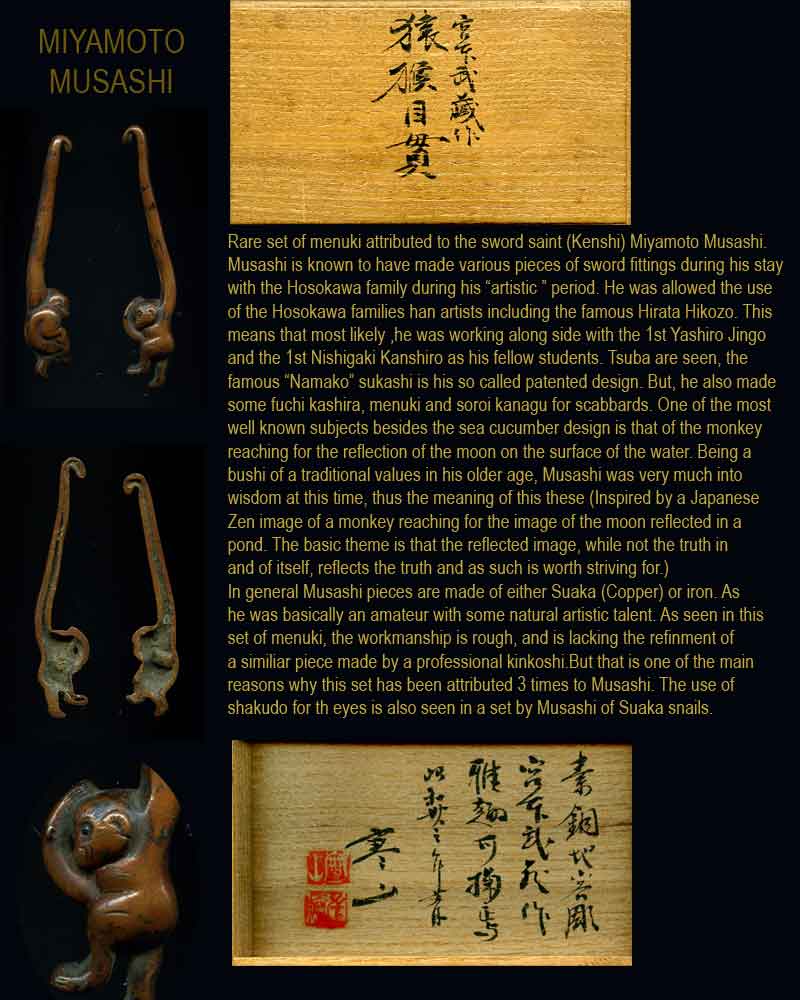 MIYAMOTO
MUSASHI
宮本武蔵作
猿猴目貫
Rare set of menuki attributed to the sword saint (Kenshi) Miyamoto Musashi.
Musashi is known to have made various pieces of sword fittings during his stay
with the Hosokawa family during his “artistic ” period. He was allowed the use
of the Hosokawa families han artists including the famous Hirata Hikozo. This
means that most likely ,he was working along side with the 1st Yashiro Jingo
and the 1st Nishigaki Kanshiro as his fellow students. Tsuba are seen, the
famous “Namako” sukashi is his so called patented design. But, he also made
some fuchi kashira, menuki and soroi kanagu for scabbards. One of the most
well known subjects besides the sea cucumber design is that of the monkey
reaching for the reflection of the moon on the surface of the water. Being a
bushi of a traditional values in his older age, Musashi was very much into
wisdom at this time, thus the meaning of this these (Inspired by a Japanese
Zen image of a monkey reaching for the image of the moon reflected in a
pond. The basic theme is that the reflected image, while not the truth in
and of itself, reflects the truth and as such is worth striving for.)
In general Musashi pieces are made of either Suaka (Copper) or iron. As
he was basically an amateur with some natural artistic talent. As seen in this
set of menuki, the workmanship is rough, and is lacking the refinment of
a similiar piece made by a professional kinkoshi.But that is one of the main
reasons why this set has been attributed 3 times to Musashi. The use of
shakudo for th eyes is also seen in a set by Musashi of Suaka snails.
素銅地容彫
宮本武蔵作
雅趣可掬焉
昭和
寒山